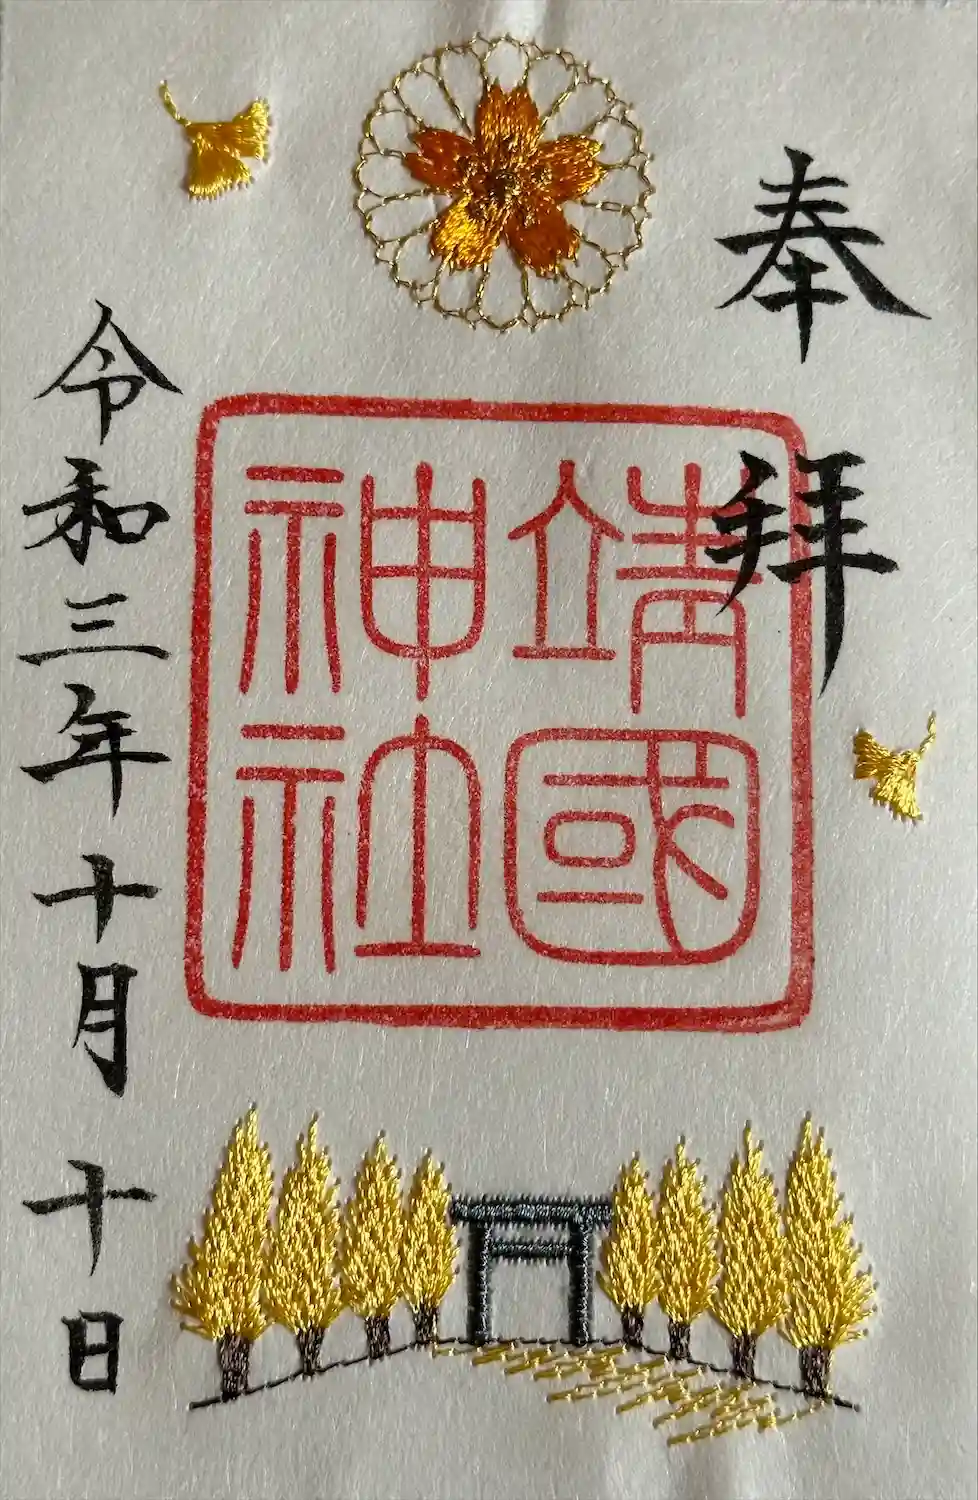 奉拝
靖國
神社
令和三年十月十日